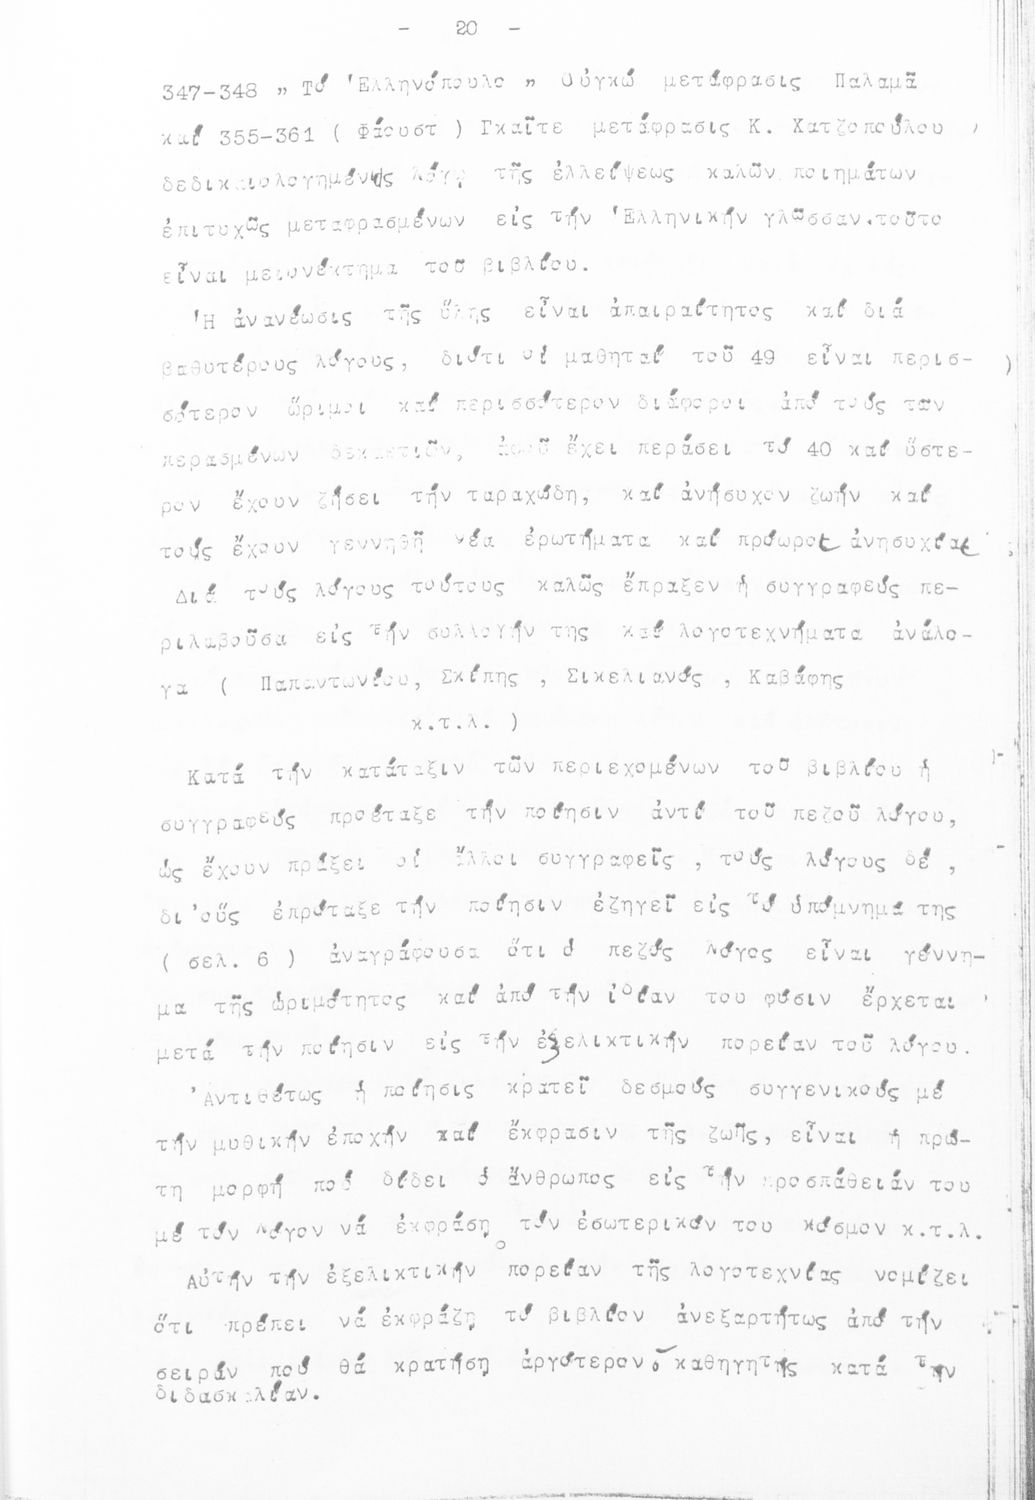 - 20 -
347-348 " Τό 'Ελληνόπουλο " Οὐγκώ μετάφρασις Παλαμᾶ
καί 355-361 ( Φάουστ ) Γκαῖτε μετάφρασις Κ. Χατζοπούλου ,
δεδικαιολογημένως λόγῳ τῆς ἐλλείψεως καλῶν ποιημάτων
ἐπιτυχῶς μεταφρασμένων εἰς τήν 'Ελληνικήν γλῶσσαν.τοῦτο
εἶναι μειονέκτημα τοῦ βιβλίου.
'Η ἀνανέωσις τῆς ὕλης εἶναι ἀπαιραίτητος καί διά
βαθυτέρους λόγους, διότι οἱ μαθηταί τοῦ 49 εἶναι περισ-
σότερον ὥριμοι καί περισσότερον διάφοροι ἀπό τούς τῶν
περασμένων δεκαετιῶν, ἀφοῦ ἔχει περάσει τό 40 καί ὕστε-
ρον ἔχουν ζήσει τήν ταραχώδη, καί ἀνήσυχον ζωήν καί
τούς ἔχουν γεννηθῆ νέα ἐρωτήματα καί πρόωροι ἀνησυχίαι
Διά τούς λόγους τούτους καλῶς ἔπραξεν ἡ συγγραφεύς πε-
ριλαβοῦσα εἰς τήν συλλογήν της καί λογοτεχνήματα ἀνάλο-
γα ( Παπαντωνίου, Σκίπης , Σικελιανός , Καβάφης
κ.τ.λ. )
Κατά τήν κατάταξιν τῶν περιεχομένων τοῦ βιβλίου ἡ
συγγραφεύς προέταξε τήν ποίησιν ἀντί τοῦ πεζοῦ λόγου,
ὡς ἔχουν πράξει οἱ ἄλλοι συγγραφεῖς , τούς λόγους δέ ,
δι'οὕς ἐπρόταξε τήν ποίησιν ἐξηγεῖ εἰς τό ὑπόμνημά της
( σελ. 6 ) ἀναγράφουσα ὅτι ὁ πεζός λόγος εἶναι γέννη-
μα τῆς ὡριμότητος καί ἀπό τήν ἰδίαν του φύσιν ἔρχεται
μετά τήν ποίησιν εἰς τήν ἐξελικτικήν πορείαν τοῦ λόγου.
'Αντιθέτως ἡ ποίησις κρατεῖ δεσμούς συγγενικούς μέ
τήν μυθικήν ἐποχήν καί ἔκφρασιν τῆς ζωῆς, εἶναι ἡ πρώ-
τη μορφή πού δίδει ὁ ἄνθρωπος εἰς τήν προσπάθειάν του
μέ τόν λόγον νά ἐκφράσῃ τόν ἐσωτερικόν του κόσμον κ.τ.λ.
Αὐτήν τήν ἐξελικτικήν πορείαν τῆς λογοτεχνίας νομίζει
ὅτι πρέπει νά ἐκφράζῃ τό βιβλίον ἀνεξαρτήτως ἀπό τήν
σειράν πού θά κρατήσῃ ἀργότερον ὁ καθηγητής κατά τήν
διδασκαλίαν.